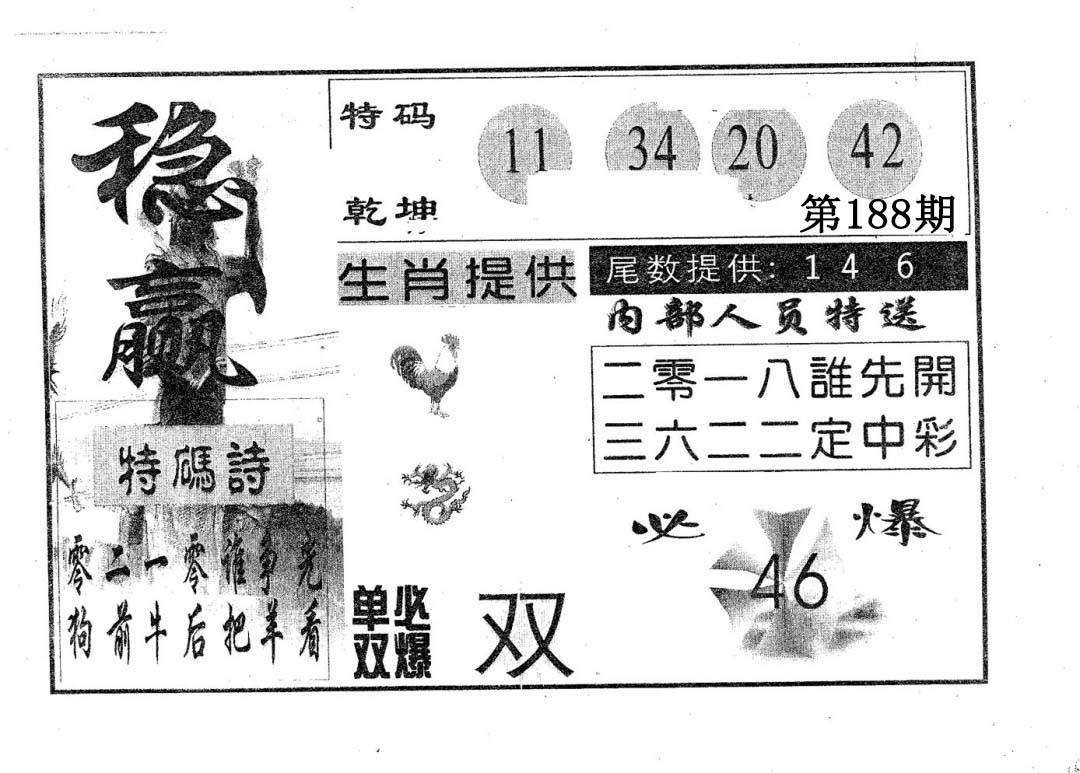 稳赢
特码
乾坤
11 34 20 42
第188期
生肖提供
尾数提供: 1 4 6
内部人员特送
二零一八誰先開
三六二二定中彩
特碼詩
零二一零谁争光
狗前牛后把羊看
必爆
46
单双
必爆
双